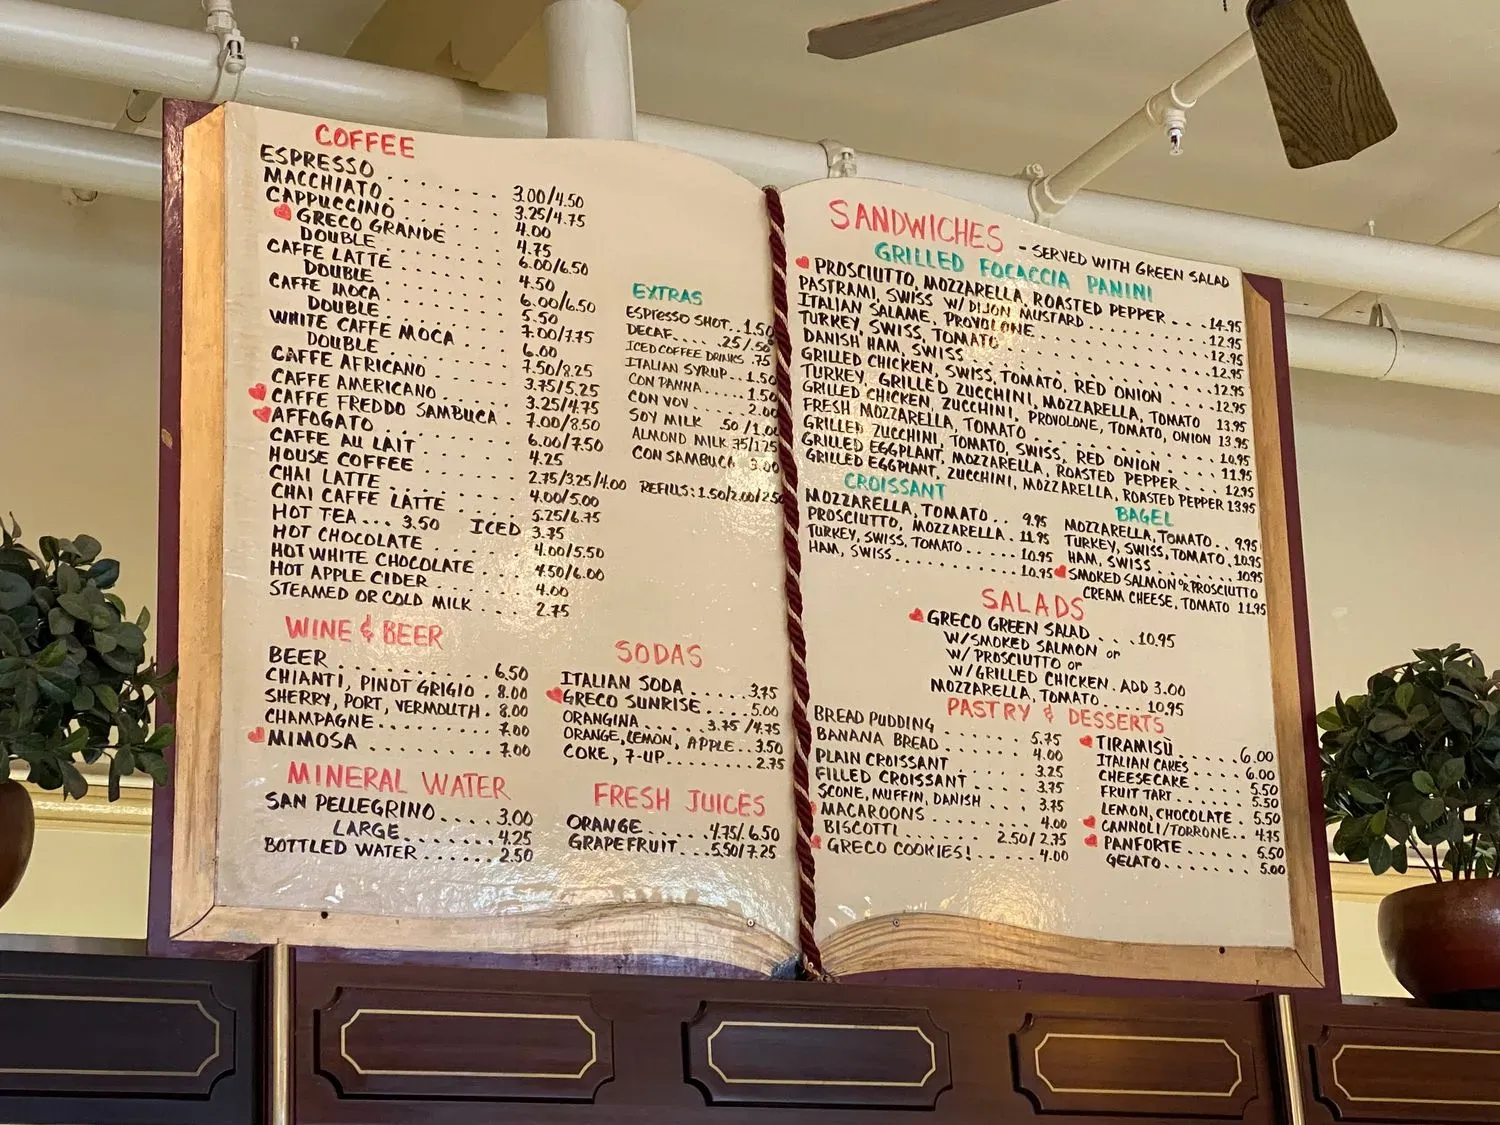 COFFEE
ESPRESSO . . . . . . . 3.00/4.50
MACCHIATO . . . . . . . 3.25/4.75
CAPPUCCINO . . . . . . . 4.00
GRECO GRANDE . . . . 4.75
DOUBLE . . . . . . . 6.00/6.50
CAFFE LATTE . . . . . . . 4.50
DOUBLE . . . . . . . 6.00/6.50
CAFFE MOCA . . . . . . . 5.50
DOUBLE . . . . . . . 7.00/7.75
WHITE CAFFE MOCA . . . . 6.00
DOUBLE . . . . . . . 7.50/8.25
CAFFE AFRICANO . . . . . 3.75/5.25
CAFFE AMERICANO . . . . . 3.25/4.75
CAFFE FREDDO SAMBUCA . 7.00/8.50
AFFOGATO . . . . . . . 6.00/7.50
CAFFE AU LAIT . . . . . . 4.25
HOUSE COFFEE . . . . . . 2.75/3.25/4.00 REFILLS: 1.50/2.00/2.50
CHAI LATTE . . . . . . . 4.00/5.00
CHAI CAFFE LATTE . . . . 5.25/6.75
HOT TEA... 3.50 ICED 3.75
HOT CHOCOLATE . . . . . 4.00/5.50
HOT WHITE CHOCOLATE . . . 4.50/6.00
HOT APPLE CIDER . . . . . 4.00
STEAMED OR COLD MILK . . . 2.75
EXTRAS
ESPRESSO SHOT. . 1.50
DECAF. . . . . .25/.50
ICED COFFEE DRINKS .75
ITALIAN SYRUP. . . 1.50
CON PANNA. . . . . 1.50
CON VOV . . . . . 2.00
SOY MILK .50/1.00
ALMOND MILK .75/1.25
CON SAMBUCA 3.00
WINE & BEER
BEER . . . . . . . . . . 6.50
CHIANTI, PINOT GRIGIO . 8.00
SHERRY, PORT, VERMOUTH . 8.00
CHAMPAGNE . . . . . . . 7.00
MIMOSA . . . . . . . . 7.00
MINERAL WATER
SAN PELLEGRINO. . . . 3.00
LARGE. . . . . . 4.25
BOTTLED WATER . . . . . . 2.50
SODAS
ITALIAN SODA . . . . . 3.75
GRECO SUNRISE. . . . 5.00
ORANGINA . . . . 3.75/4.75
ORANGE, LEMON, APPLE. . 3.50
COKE, 7-UP. . . . . . . 2.75
FRESH JUICES
ORANGE . . . . . 4.75/6.50
GRAPEFRUIT. . . 5.50/7.25
SANDWICHES - SERVED WITH GREEN SALAD
GRILLED FOCACCIA PANINI
PROSCIUTTO, MOZZARELLA, ROASTED PEPPER . . . 14.95
PASTRAMI, SWISS W/ DIJON MUSTARD . . . . . . . 12.95
ITALIAN SALAME, PROVOLONE . . . . . . . . . 12.95
TURKEY, SWISS, TOMATO . . . . . . . . . . . 12.95
DANISH HAM, SWISS . . . . . . . . . . . . 12.95
GRILLED CHICKEN, SWISS, TOMATO, RED ONION . . . . 12.95
TURKEY, GRILLED ZUCCHINI, MOZZARELLA, TOMATO 13.95
GRILLED CHICKEN, ZUCCHINI, PROVOLONE, TOMATO, ONION 13.95
FRESH MOZZARELLA, TOMATO . . . . . . . . . 10.95
GRILLED ZUCCHINI, TOMATO, SWISS, RED ONION . . . . 11.95
GRILLED EGGPLANT, MOZZARELLA, ROASTED PEPPER . . . 12.95
GRILLED EGGPLANT, ZUCCHINI, MOZZARELLA, ROASTED PEPPER 13.95
CROISSANT
MOZZARELLA, TOMATO . . 9.95
PROSCIUTTO, MOZZARELLA . 11.95
TURKEY, SWISS, TOMATO . . . . . 10.95
HAM, SWISS . . . . . . . . . . 10.95
BAGEL
MOZZARELLA, TOMATO . . 9.95
TURKEY, SWISS, TOMATO . 10.95
HAM, SWISS . . . . . . . . 10.95
SMOKED SALMON or PROSCIUTTO
CREAM CHEESE, TOMATO 11.95
SALADS
GRECO GREEN SALAD . . . 10.95
W/SMOKED SALMON or
W/ PROSCIUTTO or
W/GRILLED CHICKEN . ADD 3.00
MOZZARELLA, TOMATO . . . . . 10.95
PASTRY & DESSERTS
BREAD PUDDING . . . . . 5.75
BANANA BREAD . . . . . . 4.00
PLAIN CROISSANT . . . . . 3.25
FILLED CROISSANT . . . . 3.75
SCONE, MUFFIN, DANISH . . . 3.75
MACAROONS . . . . . . . 4.00
BISCOTTI . . . . . . 2.50/2.75
GRECO COOKIES! . . . . . 4.00
TIRAMISÙ . . . . . 6.00
ITALIAN CAKES . . . . 6.00
CHEESECAKE . . . . . 5.50
FRUIT TART . . . . . 5.50
LEMON, CHOCOLATE . 5.50
CANNOLI/TORRONE. . 4.75
PANFORTE . . . . . . 5.50
GELATO. . . . . . . . 5.00